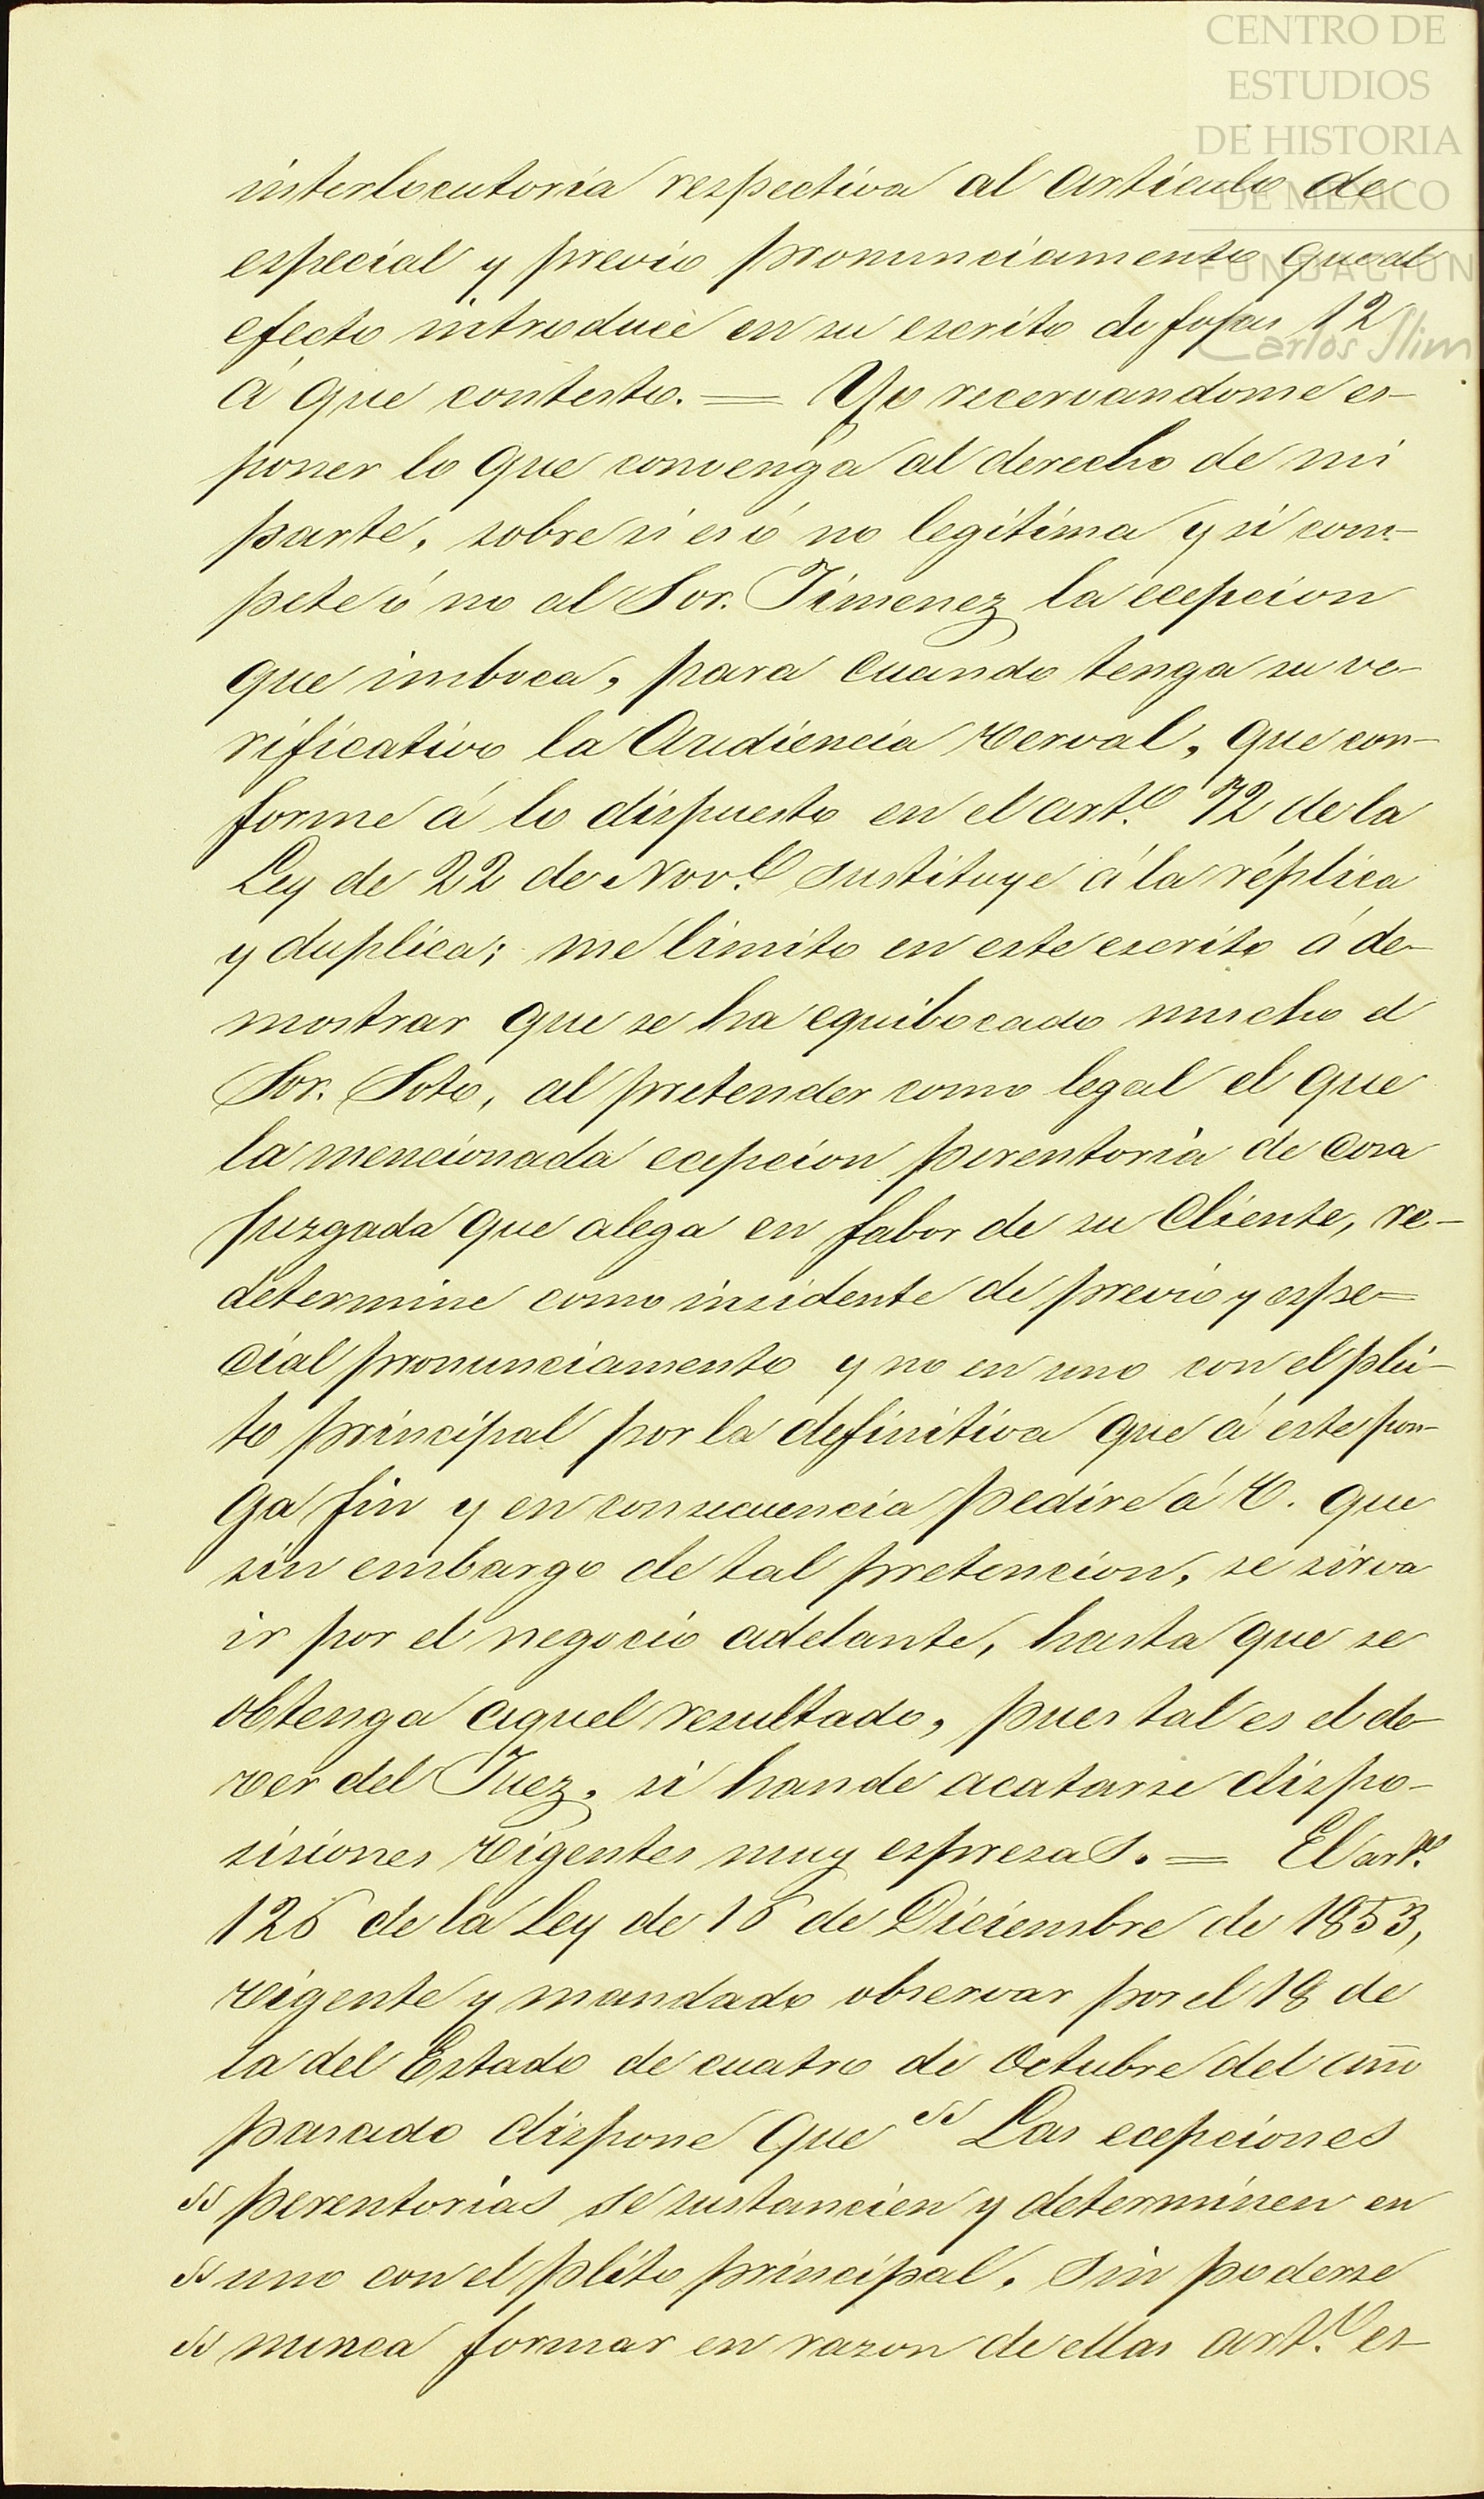 CENTRO DE
ESTUDIOS
DE HISTORIA
DE MÉXICO
FUNDACIÓN
Carlos Slim
interlocutoria respectiva al articulo de
especial y previo pronunciamento que al
efecto introduce en su escrito de fojas 12
á que contesto. = Yo recervandome es-
poner lo que convenga al derecho de mi
parte, sobre si es ó no legitima y si com-
pete ó no al Sor. Jimenez la ecepcion
que imboca, para cuando tenga su ve-
rificativo la Audiencia Verval, que con-
forme á lo dispuesto en el art.o 72 de la
Ley de 22 de Nov.e sustituye á la réplica
y duplica; me limito en este escrito á de-
mostrar que se ha equibocado mucho el
Sor. Soto, al pretender como legal el que
la mencionada ecepcion perentoria de cosa
juzgada que alega en fabor de su Cliente, re-
determine como insidente de previo y espe=
cial pronunciamento y no en uno con el plei-
to principal por la definitiva que á este pon-
ga fin y en consecuencia pedire á V. que
sin embargo de tal pretencion, se sirva
ir por el negocio adelante, hasta que se
obtenga aquel resultado, pues tal es el de-
ver del Juez, si han de acatarse dispo-
sisiones vigentes muy espresas. = El art.o
126 de la Ley de 16 de Diciembre de 1853,
vigente y mandado observar por el 18 de
la del Estado de cuatro de Octubre del año
pasado dispone que " Las ecepciones
" perentorias se sustancien y determinen en
" uno con el plito principal, sin poderse
" nunca formar en razon de ellas art.o es-